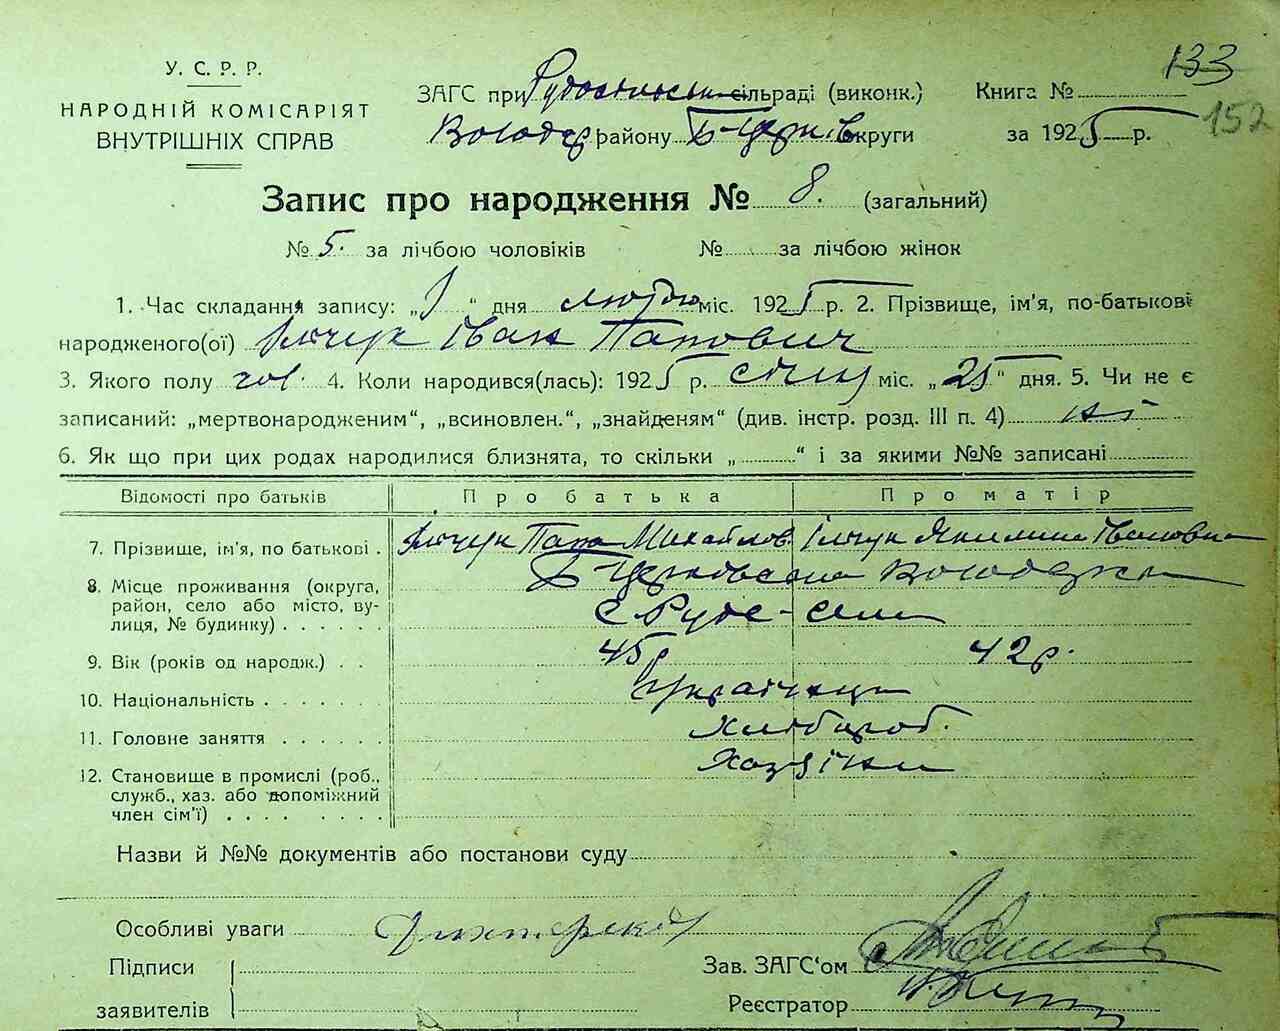 133
152
У. С. Р. Р.
НАРОДНІЙ КОМІСАРІЯТ
ВНУТРІШНІХ СПРАВ
ЗАГС при сільраді (виконк.) Книга №
Володар району Б-Церків округи за 1925 р.
Запис про народження № 8. (загальний)
№ 5. за лічбою чоловіків № за лічбою жінок
1. Час складання запису: „ “ дня лютого міс. 1925 р. 2. Прізвище, ім'я, по-батькові
народженого(ої) Ільчук Іван Папович
3. Якого полу чол. 4. Коли народився(лась): 1925 р. січня міс. „25“ дня. 5. Чи не є
записаний: „мертвонародженим“, „всиновлен.“, „знайденям“ (див. інстр. розд. III п. 4) ні
6. Як що при цих родах народилися близнята, то скільки „ “ і за якими №№ записані
Відомості про батьків Про батька Про матір
7. Прізвище, ім'я, по батькові . Ільчук Папа Михайлов. Ільчук Якилина Івановна
8. Місце проживання (округа, Б-Церківська Володарськ
район, село або місто, ву- с. Руде-село
лиця, № будинку) . . . . . .
9. Вік (років од народж.) . . 45 р 42 р.
10. Національність . . . . . . Українці
11. Головне заняття . . . . . . Хлібороб.
12. Становище в промислі (роб., Хазяїни
служб., хаз. або допоміжний
член сім'ї) . . . . . . . .
Назви й №№ документів або постанови суду
Особливі уваги
Підписи Зав. ЗАГС‘ом
заявителів Реєстратор